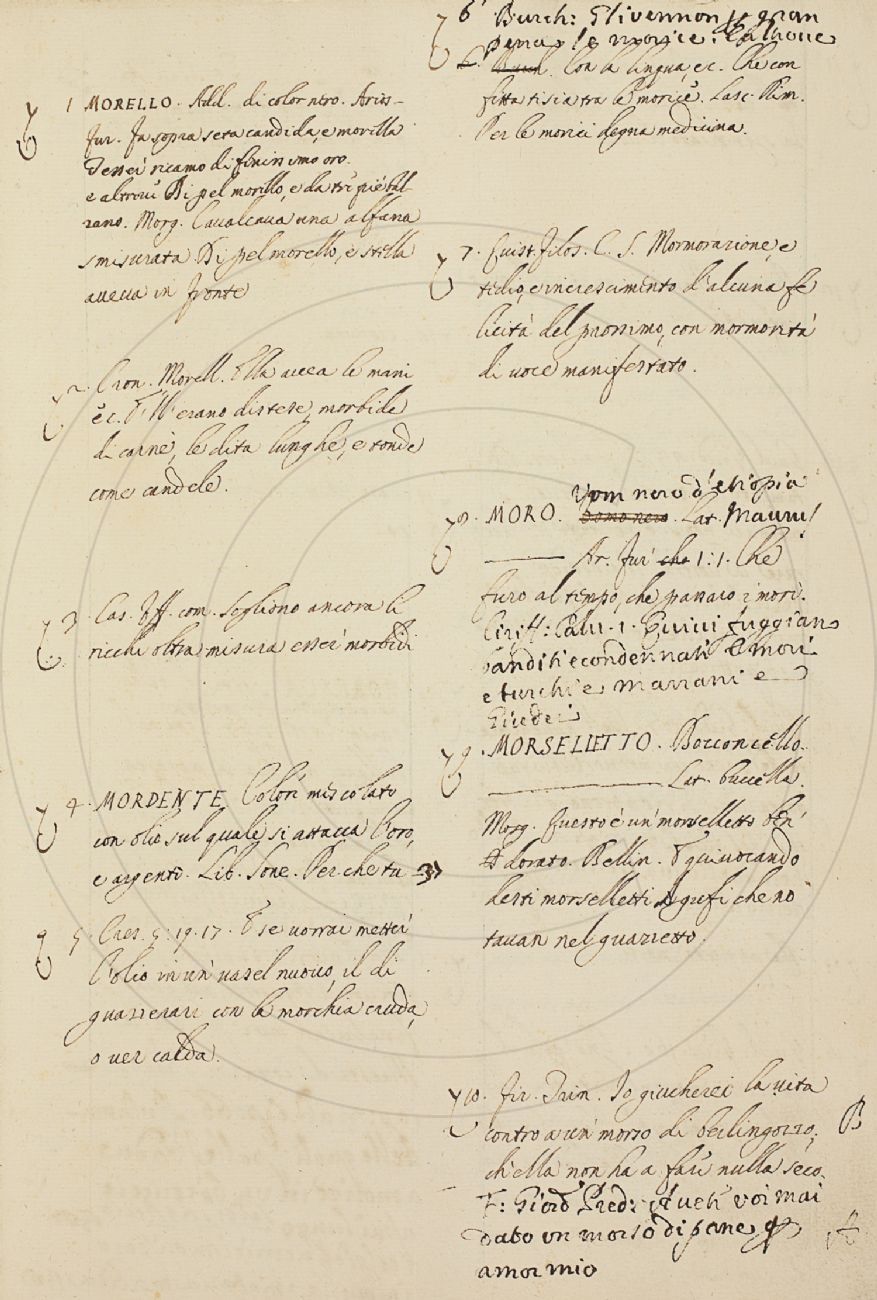 1 MORELLO. Add. di color nero. Arios-
Fur. Fa sopra seta candida, e morella
Tesser ricamo di finissimo oro.
e altrove Di pel morello, e da tre piè bal-
zano. Morg. Cavalcava una alfana
smisurata Di pel morello, e stella
aveva in fronte
2. Cron. Morell. Ella avea le mani
ec. distese, morbide
di carne, le dita lunghe, e tonde
come candele.
3. Cas. Uff. com. Sogliono ancora li
ricchi oltra misura esser morbidi
4. MORDENTE, Color mescolato
con olio sul quale si attacca l'oro,
e argento. Lib. Son. Perche tu
5. Cres. 5. 19. 17. E se vorrai metter
l'olio in un vasel nuovo, il di
guazzerai con la morchia cruda,
o ver calda.
6 Burch: gran
le morice:
Con la lingua, ec. Che con
fitta ti sia tra le morice. Lasc. Rim.
Per le morici degna medicina.
7. Quist. Filos. C. S. Mormorazione, e
tedio, e increscimento d'alcuna fe
licità del prossimo, con mormorità
di voce manifestato.
Uom nero d'etiopia
8. MORO. Lat. Maurus
Ar. Fur. 1:1. Che
furo al tempo, che passaro i mori.
Ciriff: Calv. 1. Quivi fuggiano
banditi e condennati E mori
e turchi e marrani e
Giudei
9. MORSELLETTO. Bocconcello.
Lat. buccella.
Morg. Questo è un morselletto ben
dorato. Bellin. Equivocando
desti morselletti Agufi che no
tavan nel guazzetto.
10. Fir. Trin. Io giucherei la vita
contro a un morso di berlingozzo, B
ch'ella non ha a far nulla seco.
F: Giord Pred: Aveti voi mai
dato un morso di pane
amor mio